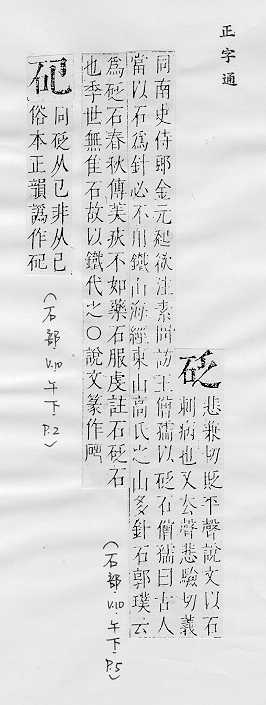 正字通
砭
悲兼切貶平聲說文以石
刺病也又去聲悲驗切義
同南史侍郎金元起欲注素問訪王僧孺以砭石僧孺曰古人
當以石爲針必不用鐵山海經東山高氏之山多針石郭璞云
爲砭石春秋傳美疢不如藥石服虔註石砭石
也季世無隹石故以鐵代之○說文篆作
(石部.V.10.午下.P.5)
同砭从
俗本正韻譌作
(石部.V.10.午下.P.2)